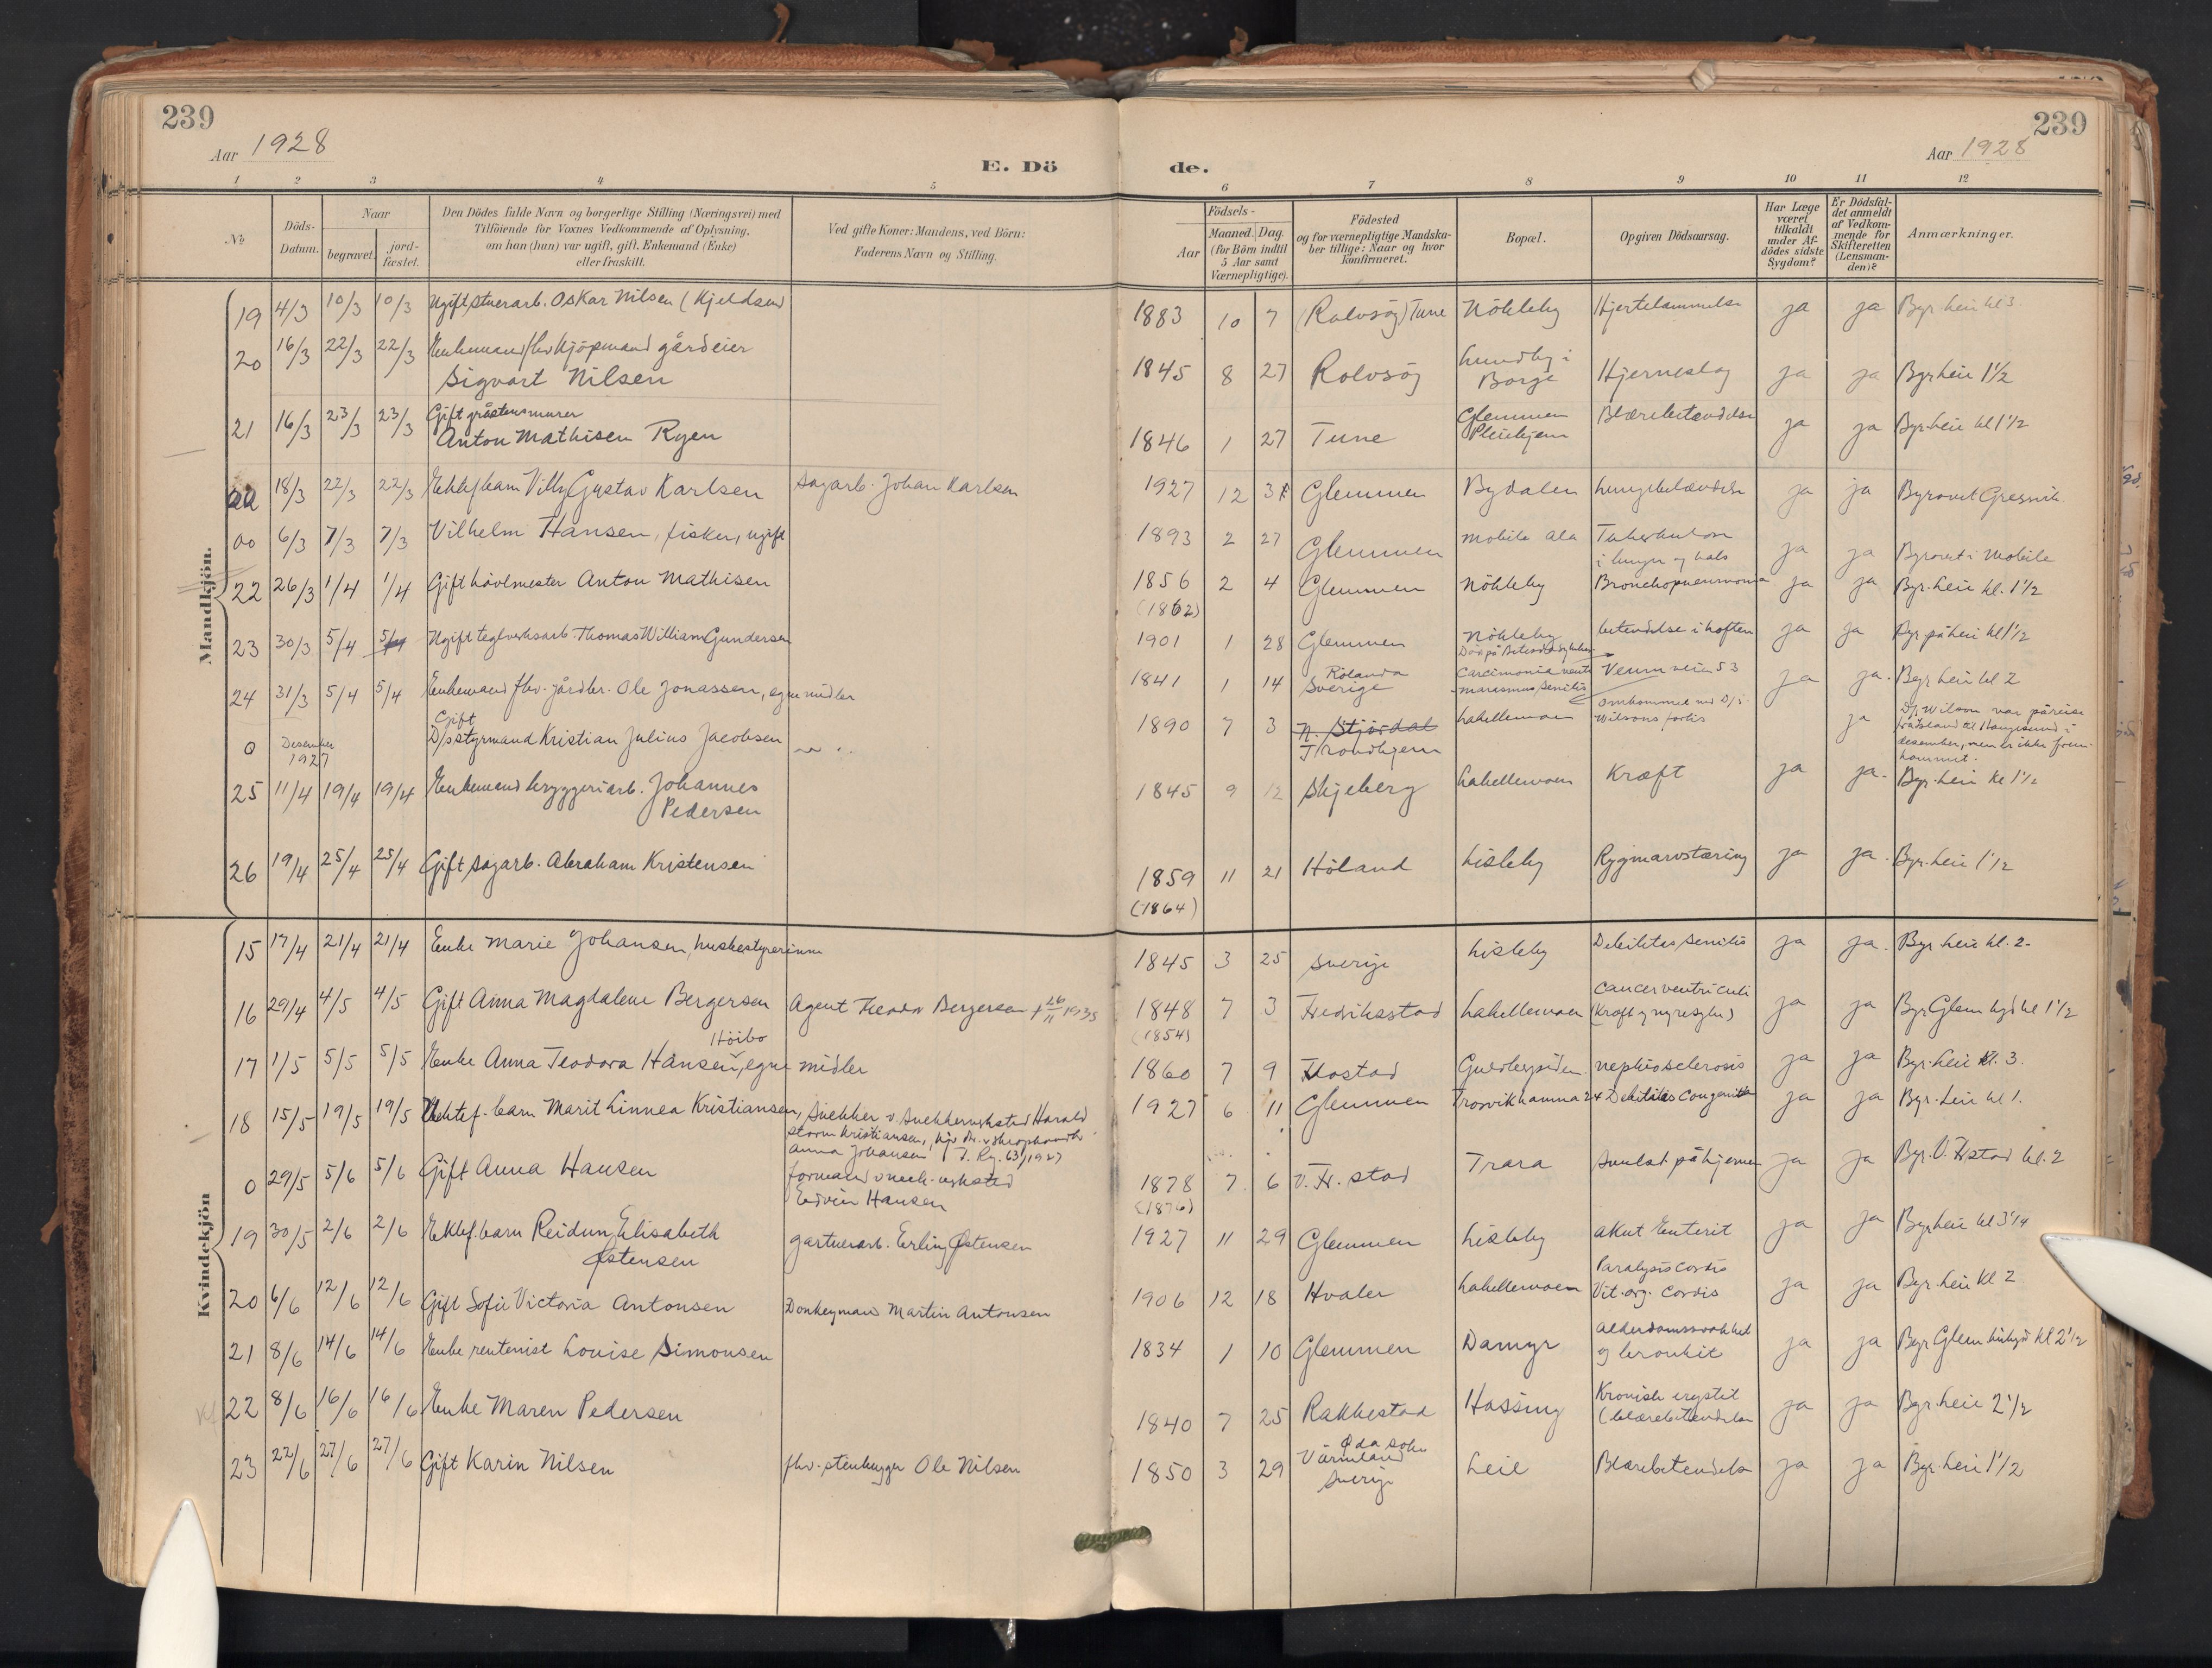 239
239
Aar 1928
Aar 1928
E. Dö
de.
1 2 3 4 5 6 7 8 9 10 11 12
No
Döds-Datum.
Naar
begravet.
jord-fæstet.
Den Dödes fulde Navn og borgerlige Stilling (Næringsvei) med
Tilföiende for Voxnes Vedkommende af Oplysning,
om han (hun) var ugift, gift, Enkemand (Enke)
eller fraskilt.
Ved gifte Koner: Mandens, ved Börn:
Faderens Navn og Stilling.
Födsels-
Aar
Maaned. Dag.
(for Börn indtil
5 Aar samt
Værnepligtige).
Födested
og for værnepligtige Mandska-
ber tillige: Naar og hvor
konfirmeret.
Bopæl.
Opgiven Dödsaarsag.
Har Læge
været
tilkaldt
under Af-
dödes sidste
Sygdom?
Er Dödsfal-
det anmeldt
af Vedkom-
mende for
Skifteretten
(Lensman-
den)?
Anmærkninger.
Mandkjön.
19 4/3 10/3 10/3 Ugift stuerarb. Oskar Nilsen (Kjeldsen) 1883 10 7 (Rolvsöy) Tune Nökleby Hjertelammelse ja ja Byr. Leie kl 3.
20 16/3 22/3 22/3 Enkemand fhv kjöpmand gårdeier
Sigvart Nilsen 1845 8 27 Rolvsöy Lundby i
Borge Hjerneslag ja ja Byr Leie 1 1/2
21 16/3 23/3 23/3 Gift gråstensmurer
Anton Mathisen Ryen 1846 1 27 Tune Glemmen
Pleiehjem Blærebetændelse ja ja Byr. Leie kl 1 1/2
18/3 22/3 22/3 Ektef barn Villy Gustav Karlsen sagarb. Johan Karlsen 1927 12 Glemmen Bydalen Lungebetændelse ja ja Byravet Gressvik
00 6/3 7/3 7/3 Vilhelm Hansen, fisker, ugift 1893 2 27 Glemmen Mobile Ala Tuberkulose
i lunger og hals ja ja Byravet i Mobile
22 26/3 1/4 1/4 Gift hövlmester Anton Mathisen 1856 2 4 Glemmen Nökleby Bronchopneumonia ja ja Byr. Leie kl. 1 1/2
(1862)
23 30/3 5/4 5/4 Ugift teglverksarb. Thomas William Gundersen 1901 1 28 Glemmen Nökleby betendelse i hoften ja ja Byr på Leie kl 1 1/2
24 31/3 5/4 5/4 Enkemand fhv. gårdbr. Ole Jonassen, egne midler 1841 1 14 Rölanda
Sverige Carcimonia ventr
marasmus senilis Veum veien 53 ja ja. Byr Leie kl 2
0 Desember
1927 Gift
D/s styrmand Kristian Julius Jacobsen 1890 7 3 N. Stjördal
Trondhjem Labellemoen omkommet med D/s
Wilsons forlis ja D/s Wilson var på reise
fra Island til Haugesund i
desember, men er ikke frem-
kommet.
25 11/4 19/4 19/4 Enkemand bryggeriarb. Johannes
Pedersen 1845 9 12 Skjeberg Labellemoen Kræft ja ja. Byr. Leie Kl 1 1/2
26 19/4 25/4 25/4 Gift sagarb. Abraham Kristensen 1859 11 21 Höland Lisleby Rygmarvstæring ja ja. Byr. Leie 1 1/2
(1864)
Kvindekjön
15 17/4 21/4 21/4 Enke Marie Johansen, husbestyrerinne 1845 3 25 Sverige Lisleby Debilitas senilis ja ja. Byr. Leie kl. 2-
16 29/4 4/5 4/5 Gift Anna Magdalene Bergersen Agent Teodor Bergersen † 26/11 1935 1848 7 3 Fredriksstad Labellemoen Cancer ventriculi
(Kræft og nyresyke) ja ja Byr Glem. kgd kl 1 1/2
(1854)
17 1/5 5/5 5/5 Enke Anna Teodora Hansen, Höibo egne midler 1860 7 9 Fr.stad Guldbergsiden nephrosclerosis ja ja Byr. Leie kl. 3.
18 15/5 19/5 19/5 Uektef. barn Marit Linnea Kristiansen, Snekker v. Snekkerverksted Harald
Storm Kristiansen,
Anna Johansen J. Rg. 63/1927 1927 6 11 Glemmen Trosvikhamna 24 Debilitas congenita ja ja Byr. Leie kl 1.
0 29/5 5/6 5/6 Gift Anna Hansen formand v mek. verksted
Edvin Hansen 1878 7 6 V. Fr. stad Trara Svulst på hjernen ja ja Byr. V. Frstad kl. 2
(1876)
19 30/5 2/6 2/6 Ektef. barn Reidun Elisabeth
Østensen gartnerarb. Erling Østensen 1927 11 29 Glemmen Lisleby akut Enterit ja ja Byr Leie kl 3 1/4
20 6/6 12/6 12/6 Gift Sofie Victoria Antonsen Donkeymand Martin Antonsen 1906 12 18 Hvaler Labellemoen Paralysis cordis
Vit. org. cordis ja ja Byr. Leie Kl 2
21 8/6 14/6 14/6 Enke rentenist Louise Simonsen 1834 1 10 Glemmen Damyr alderdomssvakhet
og bronkit ja ja Byr Glem kirkegd kl 2 1/2
22 8/6 16/6 16/6 Enke Maren Pedersen 1840 7 25 Rakkestad Hassing Kronisk cystit
(blærebetendelse ja ja Byr. Leie 2 1/2
23 22/6 27/6 27/6 Gift Karin Nilsen fhv. stenhugger Ole Nilsen 1850 3 29 Eda sokn
Värmland
Sverige Leie Blærebetendelse ja ja Byr. Leie 1 1/2